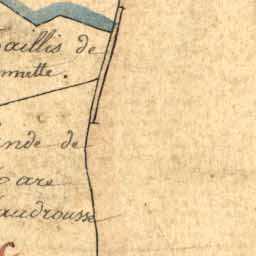 aillis de
nnette.
ande de
Care
audrousse